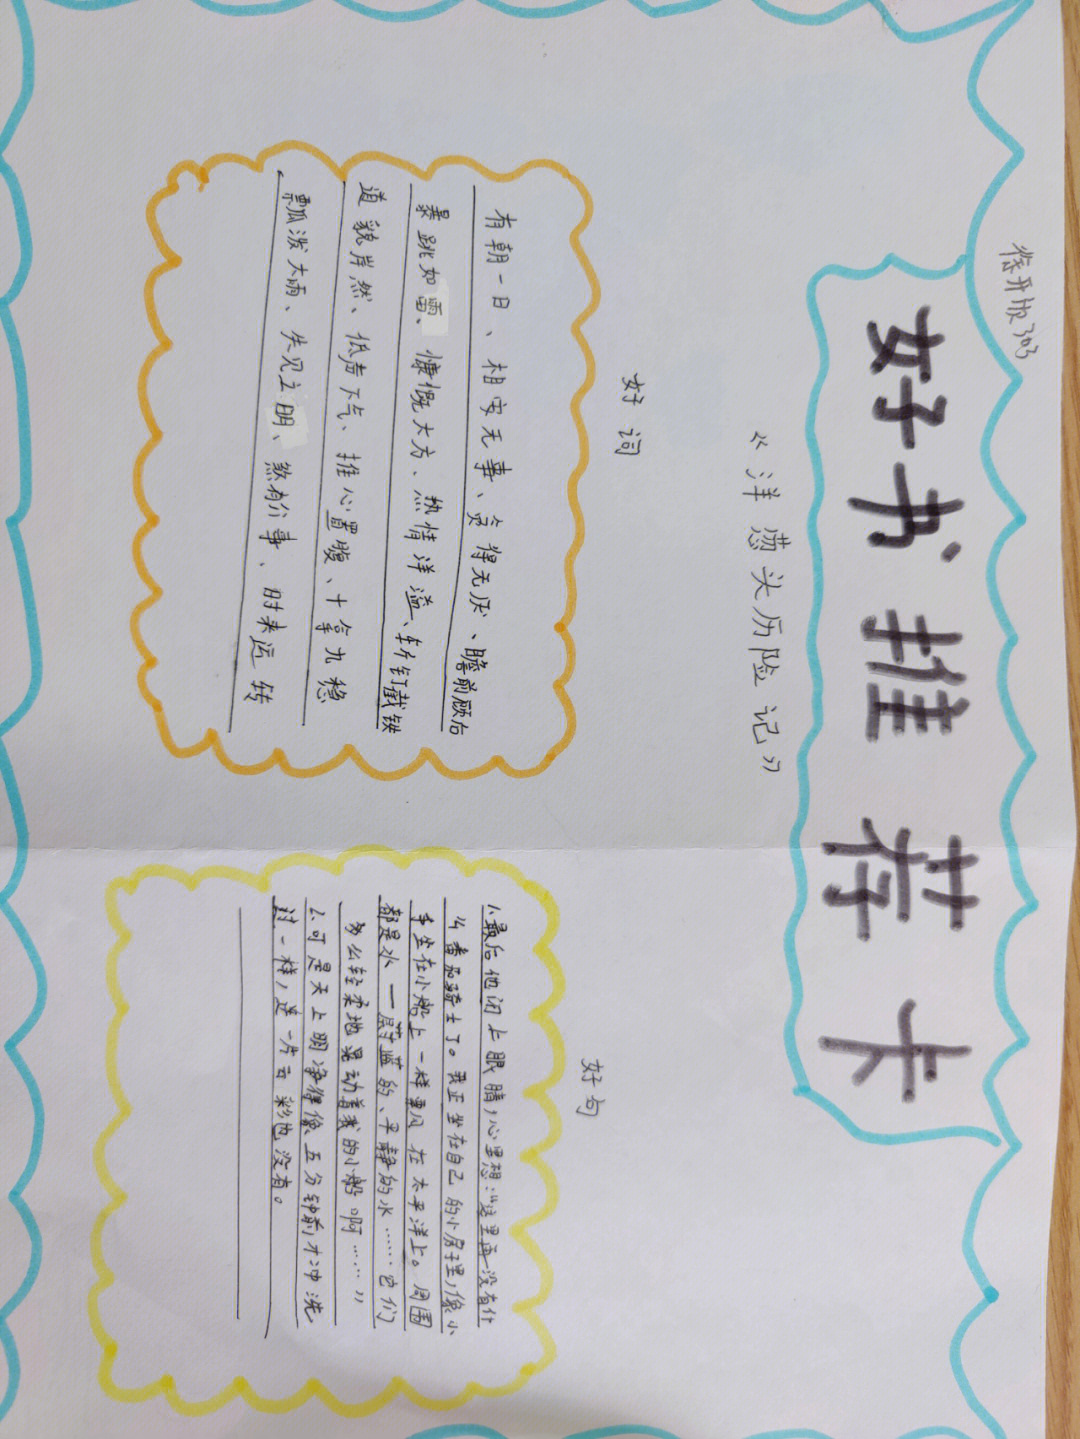 好书推荐卡
303
《洋葱头历险记》
好词
有朝一日、相安无事、贪得无厌、瞻前顾后
暴跳如雷、慷慨大方、热情洋溢、斩钉截铁
道貌岸然、低声下气、推心置腹、十拿九稳
瓢泼大雨、先见之明、煞有介事、时来运转
好句
1.最后他闭上眼睛,心里想:“这里再没有什
么番茄骑士了。我正坐在自己的小房子里,像小
手坐在小船上一样飘在太平洋上。周围
都是水——蔚蓝的、平静的水……它们
多么轻柔地晃动着我的小船啊……”
2.可是天上明净得像五分钟前才冲洗
过一样,连一片云彩也没有。